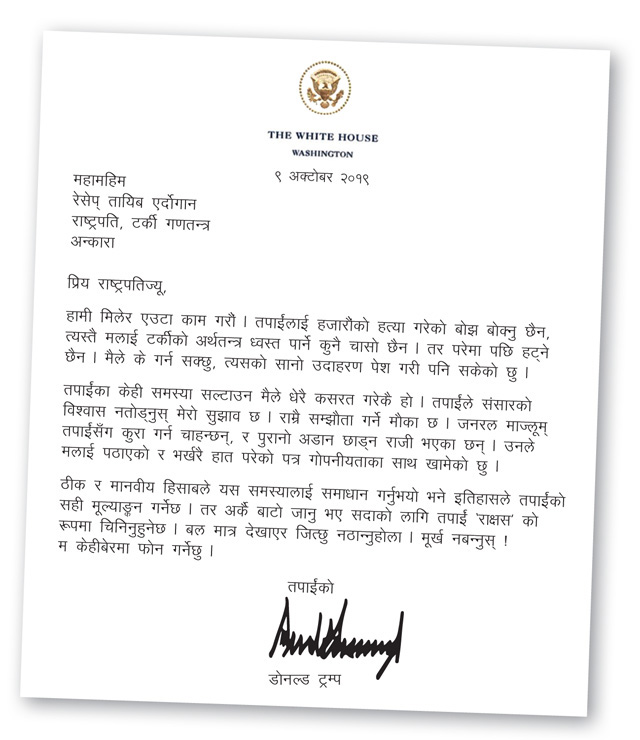 THE WHITE HOUSE
WASHINGTON
९ अक्टोबर २०१९
महामहिम
रेसेप् तायिब एर्दोगान
राष्ट्रपति, टर्की गणतन्त्र
अन्कारा
प्रिय राष्ट्रपतिज्यू,
हामी मिलेर एउटा काम गरौ । तपाईंलाई हजारौको हत्या गरेको बोझ बोक्नु छैन,
त्यस्तै मलाई टर्कीको अर्थतन्त्र ध्वस्त पार्ने कुनै चासो छैन । तर परेमा पछि हट्ने
छैन । मैले के गर्न सक्छु, त्यसको सानो उदाहरण पेश गरी पनि सकेको छु ।
तपाईंका केही समस्या सल्टाउन मैले धेरै कसरत गरेकै हो । तपाईंले संसारको
विश्वास नतोड्नुस् मेरो सुझाव छ । राम्रै सम्झौता गर्ने मौका छ । जनरल माज्लूम्
तपाईंसँग कुरा गर्न चाहन्छन्, र पुरानो अडान छाड्न राजी भएका छन् । उनले
मलाई पठाएको र भर्खरै हात परेको पत्र गोपनीयताका साथ खामेको छु ।
ठीक र मानवीय हिसाबले यस समस्यालाई समाधान गर्नुभयो भने इतिहासले तपाईंको
सही मूल्याङ्कन गर्नेछ । तर अर्कै बाटो जानु भए सदाको लागि तपाईं 'राक्षस' को
रूपमा चिनिनुहुनेछ । बल मात्र देखाएर जित्छु नठान्नुहोला । मूर्ख नबन्नुस् !
म केहीबेरमा फोन गर्नेछु ।
तपाईंको
डोनल्ड ट्रम्प